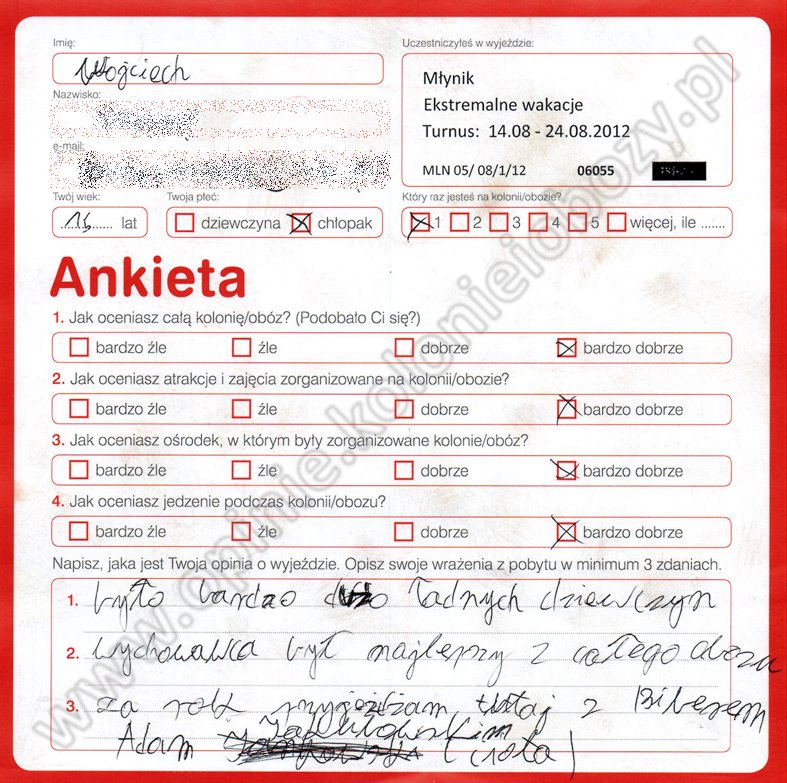 Imię:
Wojciech
Nazwisko:
e-mail:
Twój wiek:
15 lat
Twoja płeć:
dziewczyna chłopak
Uczestniczyłeś w wyjeździe:
Młynik
Ekstremalne wakacje
Turnus: 14.08 - 24.08.2012
MLN 05/ 08/1/12 06055
Który raz jesteś na kolonii/obozie?
1 2 3 4 5 więcej, ile .......
Ankieta
1. Jak oceniasz całą kolonię/obóz? (Podobało Ci się?)
bardzo źle źle dobrze bardzo dobrze
2. Jak oceniasz atrakcje i zajęcia zorganizowane na kolonii/obozie?
bardzo źle źle dobrze bardzo dobrze
3. Jak oceniasz ośrodek, w którym były zorganizowane kolonie/obóz?
bardzo źle źle dobrze bardzo dobrze
4. Jak oceniasz jedzenie podczas kolonii/obozu?
bardzo źle źle dobrze bardzo dobrze
Napisz, jaka jest Twoja opinia o wyjeździe. Opisz swoje wrażenia z pobytu w minimum 3 zdaniach.
1. było bardzo dużo ładnych dziewczyn
2. wychowawca był najlepszy z całego obozu
3. za rok przyjeżdżam tutaj z Biberem
Adam (ciota)
www.opinie.kolonieiobozy.pl